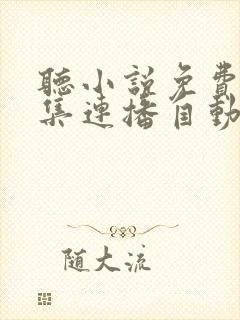 聽小説免費
集連播自動
随大流